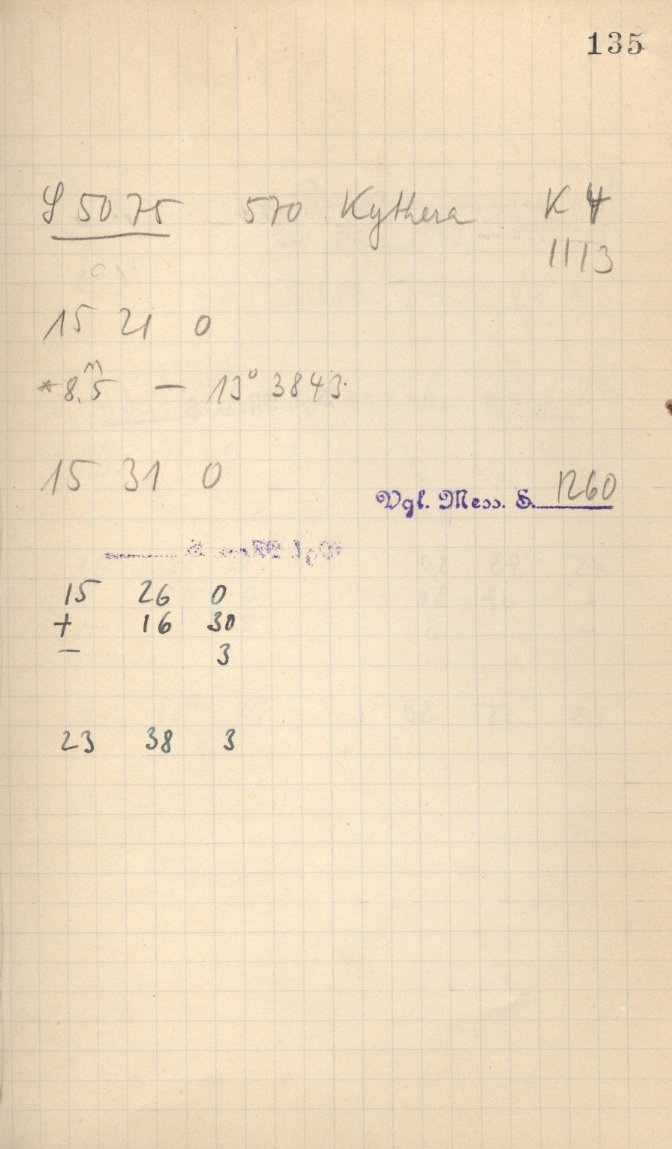 135
S 5075 570 Kythera K 4
1113
15 21 0
*8.5ᵐ — 13° 3843
15 31 0
Vgl. Mess. S. 1260
15 26 0
+ 16 30
— 3
23 38 3